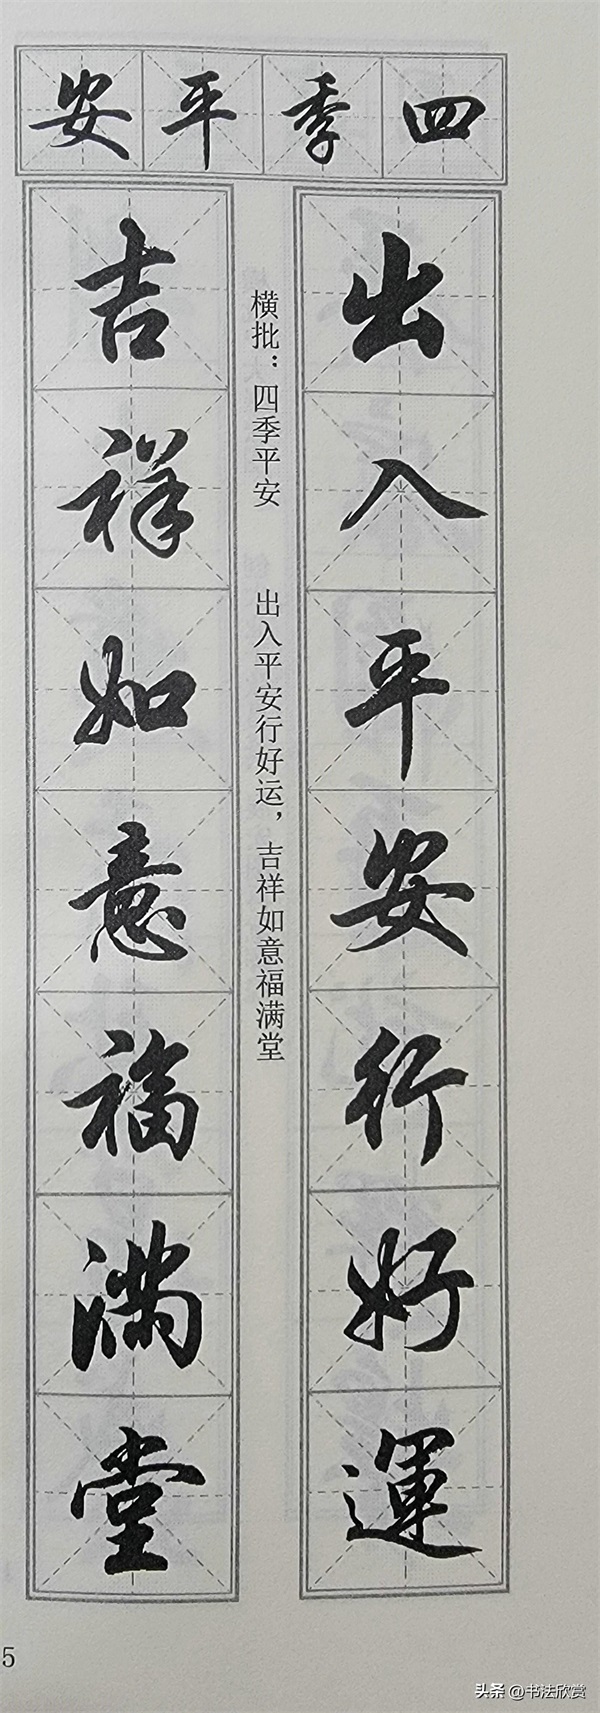 四季平安
出入平安行好運
横批：四季平安　出入平安行好运，吉祥如意福满堂
吉祥如意福满堂
5
头条 @书法欣赏